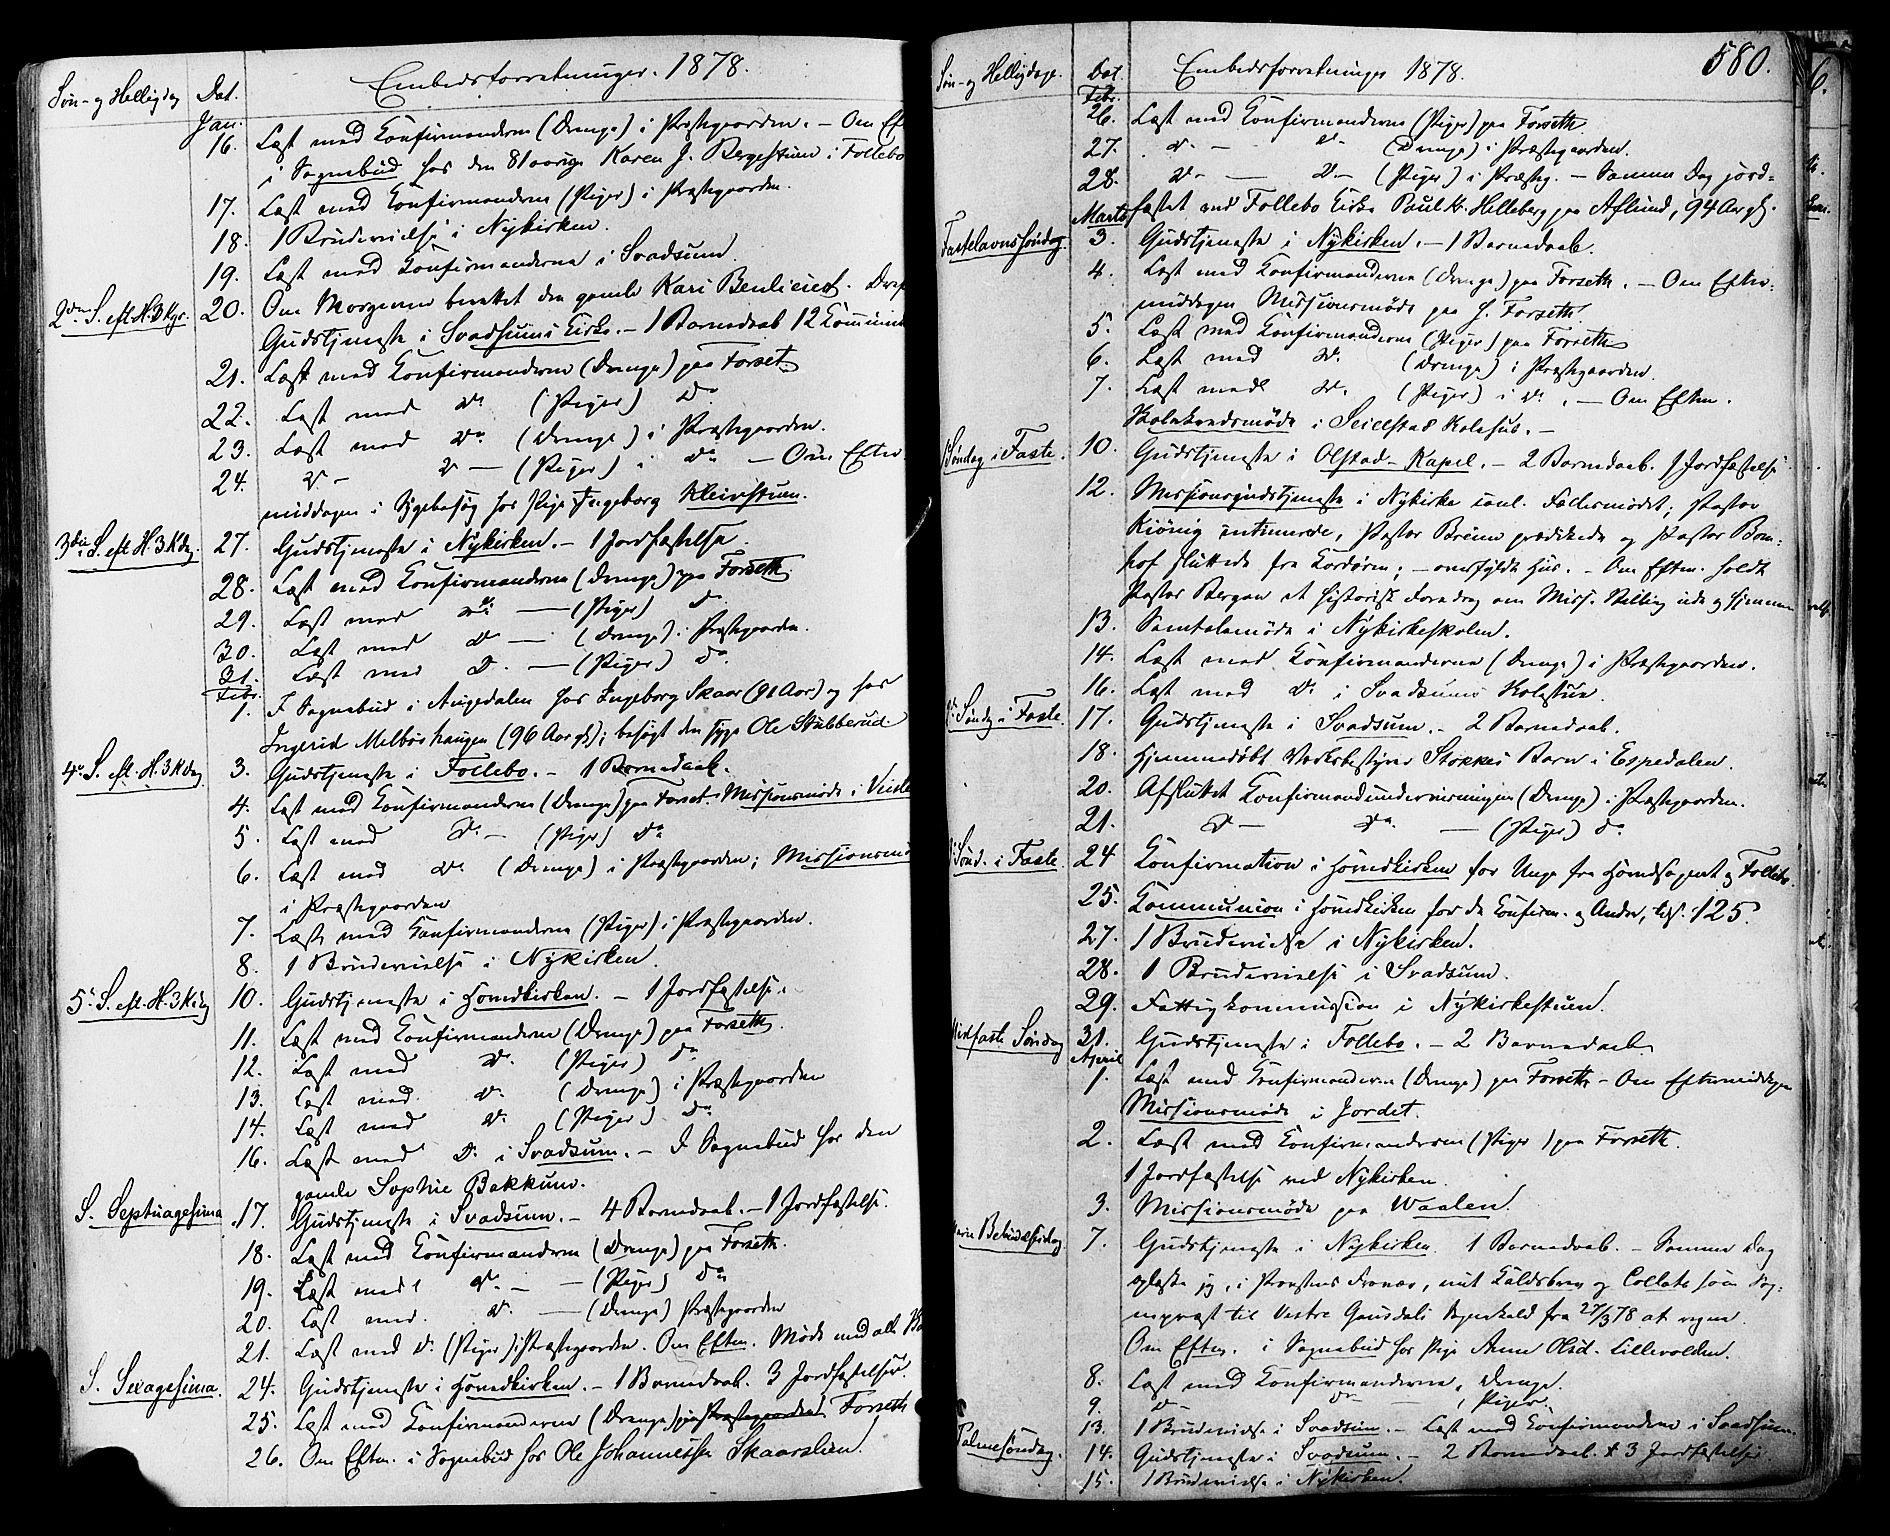 Søn- og Helligdag Dat. Embedsforretninger. 1878.
Jan.
16. Læst med Konfirmanderne (Drenge) i Præstegaarden. – Om Eft
i Sognebud hos den 81 aarige Karen J. Bergestuen i Follebo
17. Læst med Konfirmanderne (Piger) i Præstegaarden.
18. 1 Brudevielse i Nykirken.
19. Læst med Konfirmanderne i Svadsum.
2den S. eft. H. 3 Kgr. 20. Om Morgenen berettet den gamle Kari Benlieiet. Derp
Gudstjeneste i Svadsums Kirke. – 1 Barnedaab 12 Kommunik
21. Læst med Konfirmanderne (Drenge) paa Forset.
22. Læst med do (Piger) do
23. Læst med do (Drenge) i Præstegaarden.
24. do – do – (Piger) i do – Om Efter
middagen i Sygebesøg hos Pige Ingeborg Kleivstuen.
3die S. eft. H. 3 Kdag. 27. Gudstjeneste i Nykirken. – 1 Jordfæstelse.
28. Læst med Konfirmanderne (Drenge) paa Forseth.
29. Læst med do – (Piger) do
30. Læst med do – (Drenge) i Præstegaarden.
31. Læst med do – (Piger) do
Febr.
1. I Sognebud i Augedalen hos Ingeborg Skaar (91 Aar) og hos
Ingerid Melbøshaugen (96 Aar gl.); besøgt den syge Ole Stubberud.
4de S. eft. H. 3 Kdag 3. Gudstjeneste i Follebo. – 1 Barnedaab.
4. Læst med Konfirmanderne (Drenge) paa Forset. Missionsmøde i
5. Læst med do – (Piger) do
6. Læst med do (Drenge) i Præstegaarden; Missionsmø
i Præstegaarden
7. Læst med Konfirmanderne (Piger) i Præstegaarden.
8. 1 Brudevielse i Nykirken.
5te S. eft. H. 3 Kdag 10. Gudstjeneste i Hovedkirken. – 1 Jordfæstelse.
11. Læst med Konfirmanderne (Drenge) paa Forseth.
12. Læst med do (Piger) do
13. Læst med do (Drenge) i Præstegaarden
14. Læst med do (Piger) do
16. Læst med do i Svadsum. – I Sognebud hos den
gamle Sophie Bakkum.
S. Septuagesima 17. Gudstjeneste i Svadsum. – 4 Barnedaab. – 1 Jordfæstelse.
18. Læst med Konfirmanderne (Drenge) paa Forseth.
19. Læst med do – (Piger) do
20. Læst med do – (Drenge) Præstegaarden
21. Læst med do (Piger) i Præstegaarden. Om Eftm. Møde med alle
S. Sexagesima. 24. Gudstjeneste i Hovedkirken. – 1 Barnedaab. 3 Jordfæstelser.
25. Læst med Konfirmanderne (Drenge) i Præstegaarden Forseth
26. Om Eftm. i Sognebud hos Ole Johannessen Skaarslien.
Søn- og Helligdage. Dat. Embedsforretninger 1878. 580.
Febr.
26. Læst med Konfirmanderne (Piger) paa Forseth.
27. do – do (Drenge) i Præstegaarden.
28. do – do – (Piger) i Præsteg. – Samme Dag jord-
fæstet ved Follebo Kirke Paul Kr. Helleberg paa Aflund, 94 Aar gl.
Marts
Fastelavnssøndag. 3. Gudstjeneste i Nykirken. – 1 Barnedaab.
4. Læst med Konfirmanderne (Drenge) paa Forseth. – Om Efter-
middagen Missionsmøde paa J. Forseth.
5. Læst med Konfirmanderne (Piger) paa Forseth
6. Læst med do (Drenge) i Præstegaarden.
7. Læst med do (Piger) i do. – Om Eftm.
Skolekredsmøde i Seielstad Skolehus. –
1 Søndag i Faste. 10. Gudstjeneste i Olstad-Kapel. – 2 Barnedaab. 1 Jordfæstelse
12. Missionsgudstjeneste i Nykirke Fællesmødet; Pastor
Kiönig intimerede, Pastor Bruun prædikede og Pastor Bom-
hof sluttede fra Kordøren; – overfyldt Hus. – Om Eftm. holdt
Pastor Bergan et historisk Foredrag om Miss. Stilling ude og hjemme
13. Samtalemøde i Nykirkeskolen.
14. Læst med Konfirmanderne (Drenge) i Præstegaarden.
16. Læst med do i Svadsums Skolestue.
2. Søndag i Faste. 17. Gudstjeneste i Svadsum. – 2 Barnedaab.
18. Hjemmedøbt Værksbestyrer Stokkes Barn i Espedalen.
20. Afsluttet Konfirmandundervisningen (Drenge) i Præstegaarden.
21. do – do – (Piger) do
3. Sønd. i Faste. 24 Konfirmation i Hovedkirken for Unge fra Hovedsognet og Follebo.
25. Kommunion i Hovedkirken for de Konfirm. og Andre, tils. 125.
27. 1 Brudevielse i Nykirken.
28. 1 Brudevielse i Svadsum.
29. Fattigkommission i Nykirkestuen.
Midfaste Søndag 31. Gudstjeneste i Follebo. – 2 Barnedaab.
April
1. Læst med Konfirmanderne (Drenge) paa Forseth – Om Eftermiddagen
Missionsmøde i Jordet.
2. Læst med Konfirmanderne (Piger) paa Forseth.
1 Jordfæstelse ved Nykirken.
3. Missionsmøde paa Waalen.
Mariæ Bebudelsesdag 7. Gudstjeneste i Nykirken. 1 Barnedaab. – Samme Dag
oplæste jeg, i Provstens Fravær, mit Kaldsbrev og Collats som Sog-
nepræst til Vestre Gausdals Sognekald fra 27/3 78 at regne.
Om Eftm. i Sognebud hos Pige Anne Olsd. Lillevolden.
8. Læst med Konfirmanderne, Drenge.
9. do – do – , Piger.
13. 1 Brudevielse i Svadsum. – Læst med Konfirmanderne i Svadsum.
Palmesøndag. 14. Gudstjeneste i Svadsum. – 2 Barnedaab. & 3 Jordfæstelser
15. 1 Brudevielse i Nykirken.